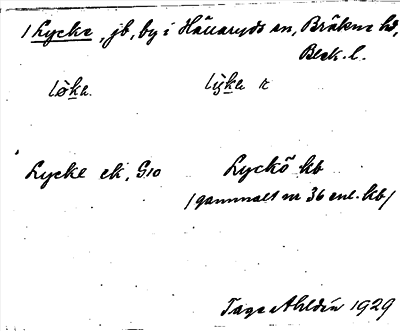 1 Lycke, jb, by i Hällaryds sn, Bräkne hd,
Blek. l.
løkə. lykə k
Lycke ek, G10 Lyckö kb
/gammalt nr 36 enl. kb/
Tage Ahldén 1929